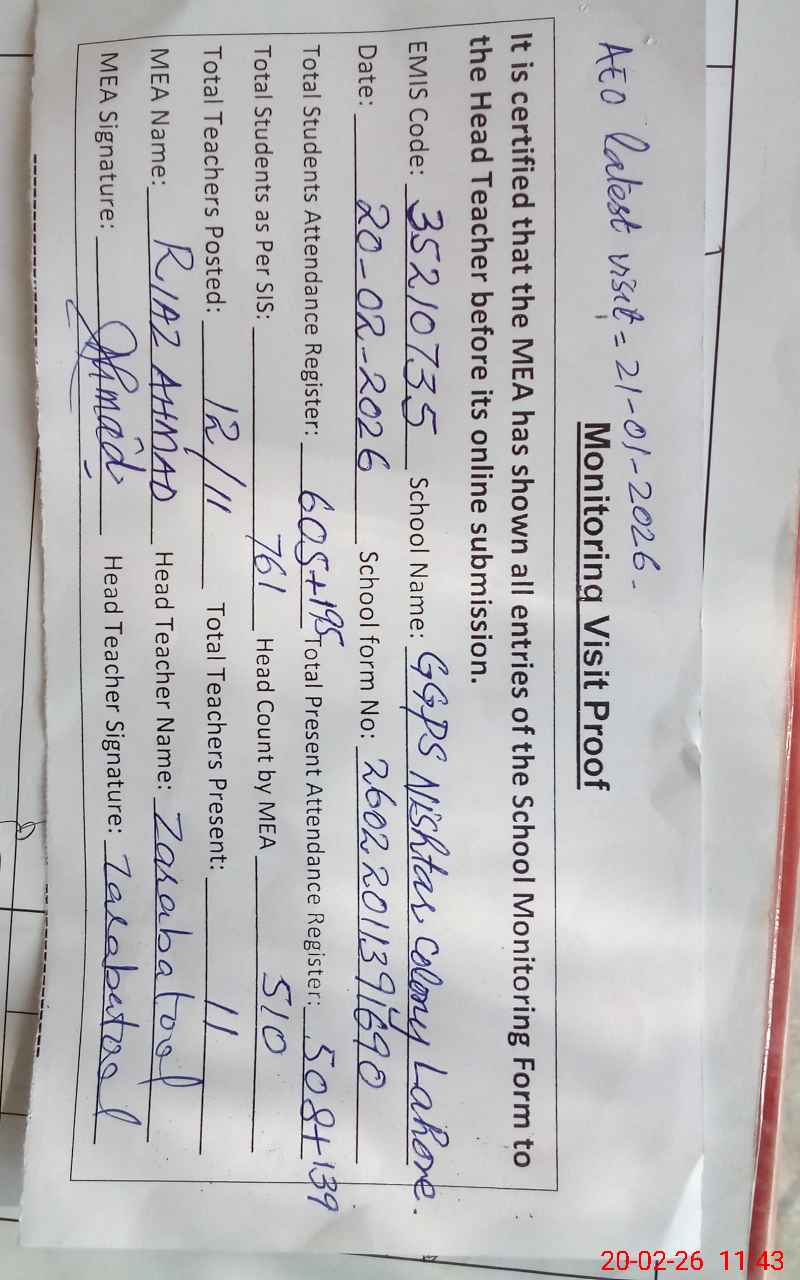 AEO latest visit = 21-01-2026.
Monitoring Visit Proof
It is certified that the MEA has shown all entries of the School Monitoring Form to
the Head Teacher before its online submission.
EMIS Code: 35210735 School Name: GGPS Nishtar Colony Lahore.
Date: 20-02-2026 School form No: 26022011391690
Total Students Attendance Register: 605+195 Total Present Attendance Register: 508+139
Total Students as Per SIS: 761 Head Count by MEA 510
Total Teachers Posted: 12/11 Total Teachers Present: 11
MEA Name: RIAZ AHMAD Head Teacher Name: Zarabatool
MEA Signature: Ahmad Head Teacher Signature: Zarabatool
20-02-26 11:43